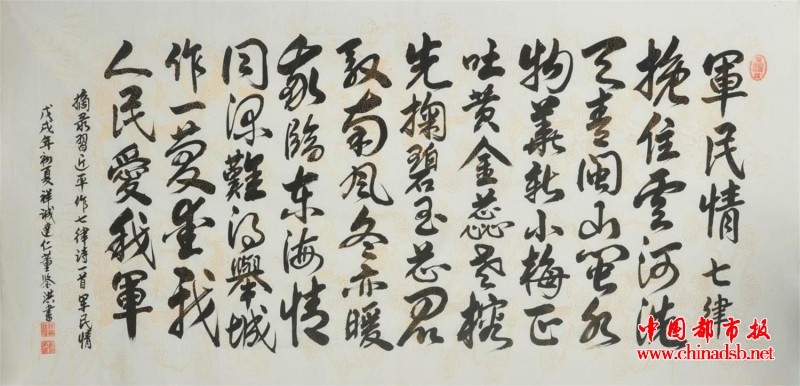 軍民情 七律
挽住云河洗
天青闽山闽水
物華新小梅正
吐黄金蕊老榕
先掬碧玉芯君
驭南风冬亦暖
我臨东海情
同深難得舉城
作一慶愛我
人民愛我軍
摘录習近平作七律诗一首軍民情
戊戌年初夏祥诚達仁董鉴洪書
中国都市报
www.chinadsb.net